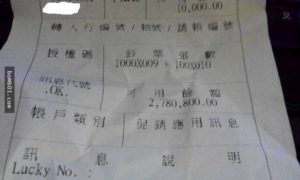 10,000.00
轉入行編號/帳號/銷帳編號
授權碼 鈔票張數
1000X009 + 100X010
訊息代號 可用餘額
.OK. 2,780,800.00
帳戶類別 促銷應用訊息
訊息說明
Lucky No. :
bomb01.com